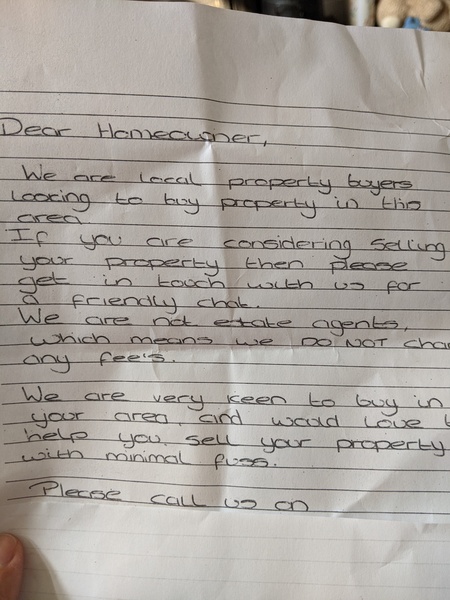 Dear Homeowner,
We are local property buyers
looking to buy property in this
area
If you are considering selling
your property then please
get in touch with us for
a friendly chat.
We are not estate agents,
which means we DO NOT char
any fee's.
We are very keen to buy in
your area, and would love t
help you sell your property
with minimal fuss.
Please call us on